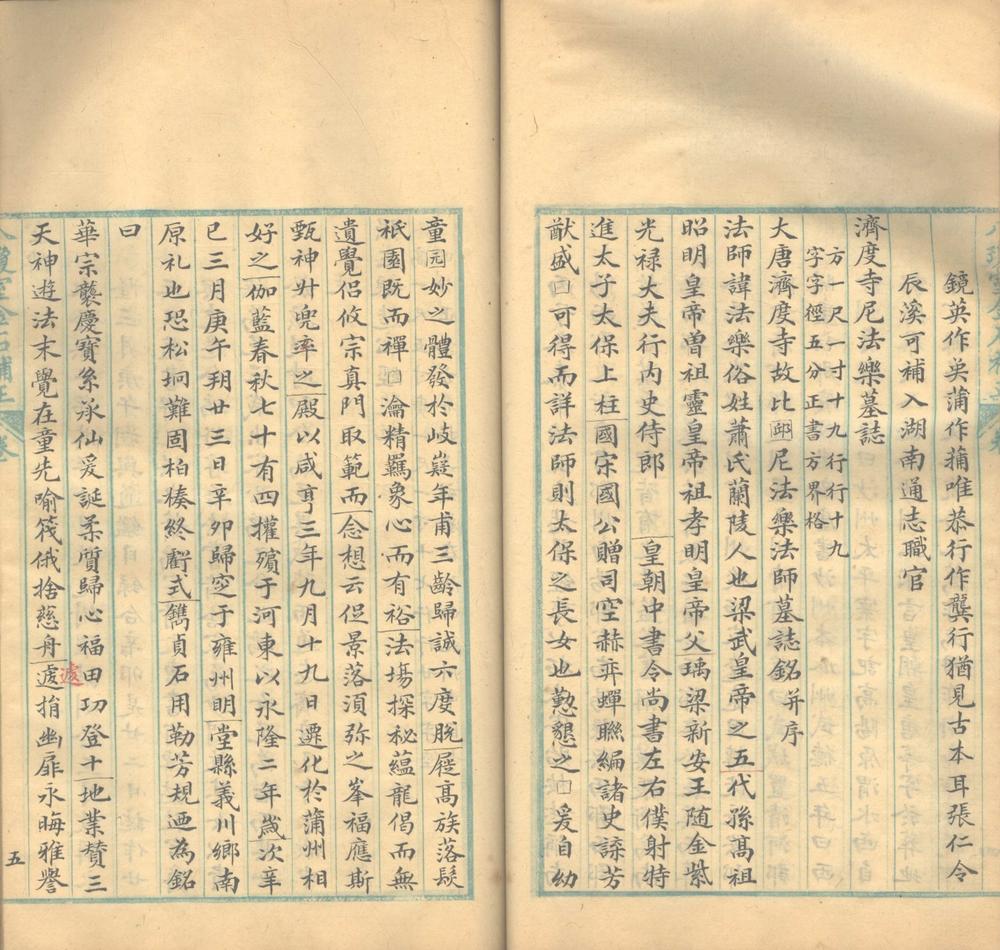 鏡英作奐蒲作蒱唯恭行作龔行猶見古本耳張仁令
辰溪可補入湖南通志職官
濟度寺尼法樂墓誌
方一尺一寸十九行行十九
字字徑五分正書方界格
大唐濟度寺故比邱尼法樂法師墓誌銘并序
法師諱法樂俗姓蕭氏蘭陵人也梁武皇帝之五代孫高祖
昭明皇帝曽祖靈皇帝祖孝明皇帝父瑀梁新安王随金紫
光禄大夫行内史侍郎皇朝中書令尚書左右僕射特
進太子太保上柱國宋國公贈司空赫弈蟬聯編諸史諜芳
猷盛□可得而詳法師則太保之長女也懃懇之□爰自幼
童园妙之體發於岐嶷年甫三齡歸誠六度脱屣髙族落髮
祇園既而禪□瀹精羈象心而有裕法塲探秘蘊龍偈而無
遺覺侣攸宗真門取範而念想云促景落須弥之峯福應斯
甄神廾兜率之殿以咸亨三年九月十九日遷化於蒲州相
好之伽藍春秋七十有四攉殯于河東以永隆二年嵗次辛
巳三月庚午朔廿三日辛夘歸窆于雍州明堂縣義川鄉南
原礼也恐松坰難固柏椟終虧式鐫貞石用勒芳規廼為銘
曰
華宗襲慶寳系承仙爰誕柔質歸心福田功登十地業賛三
天神逰法末覺在童先喻筏俄捨慈舟遽捐幽扉永晦雅譽
遽
五